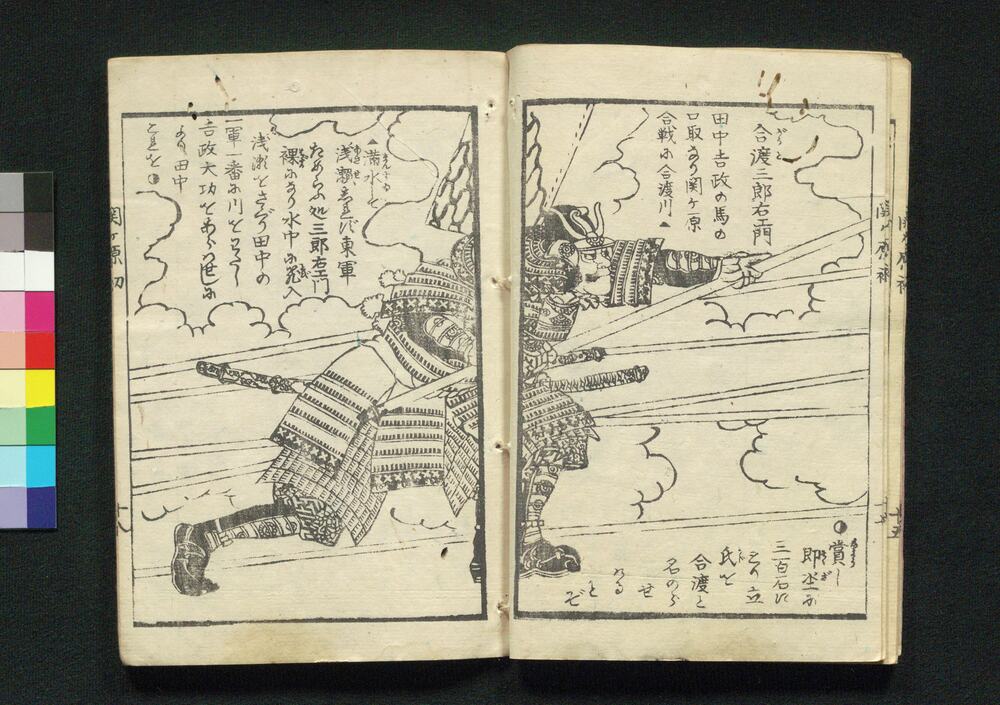 合渡三郎右エ門
田中吉政の馬の
口取なり関ケ原
合戦に合渡川▲
▲満水して
浅瀬しれず東軍
ためらふ処三郎右エ門
裸になり水中に飛入
浅瀬をさぐり田中の
一軍一番に川をわたし
吉政大功をあらはせしに
より田中
これを
賞し
即坐に
三百石に
とり立
氏を
合渡と
名のら
せ
ける
とぞ
関ケ原